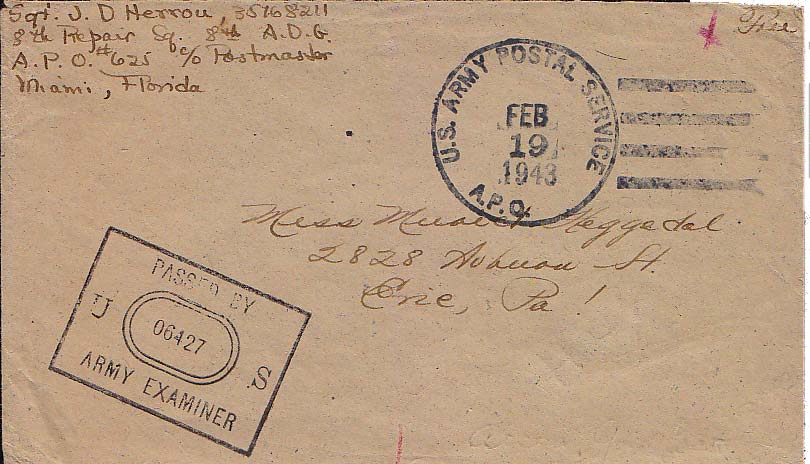 Sgt. J. D Herrou, 35768211
8th Repair Sq. 8th A.D.G.
A.P.O. #625 c/o Postmaster
Miami, Florida
Free
U.S. ARMY POSTAL SERVICE
FEB
19
1943
A.P.O.
Miss Heggedal
2828 St.
Erie, Pa!
PASSED BY
U 06427 S
ARMY EXAMINER